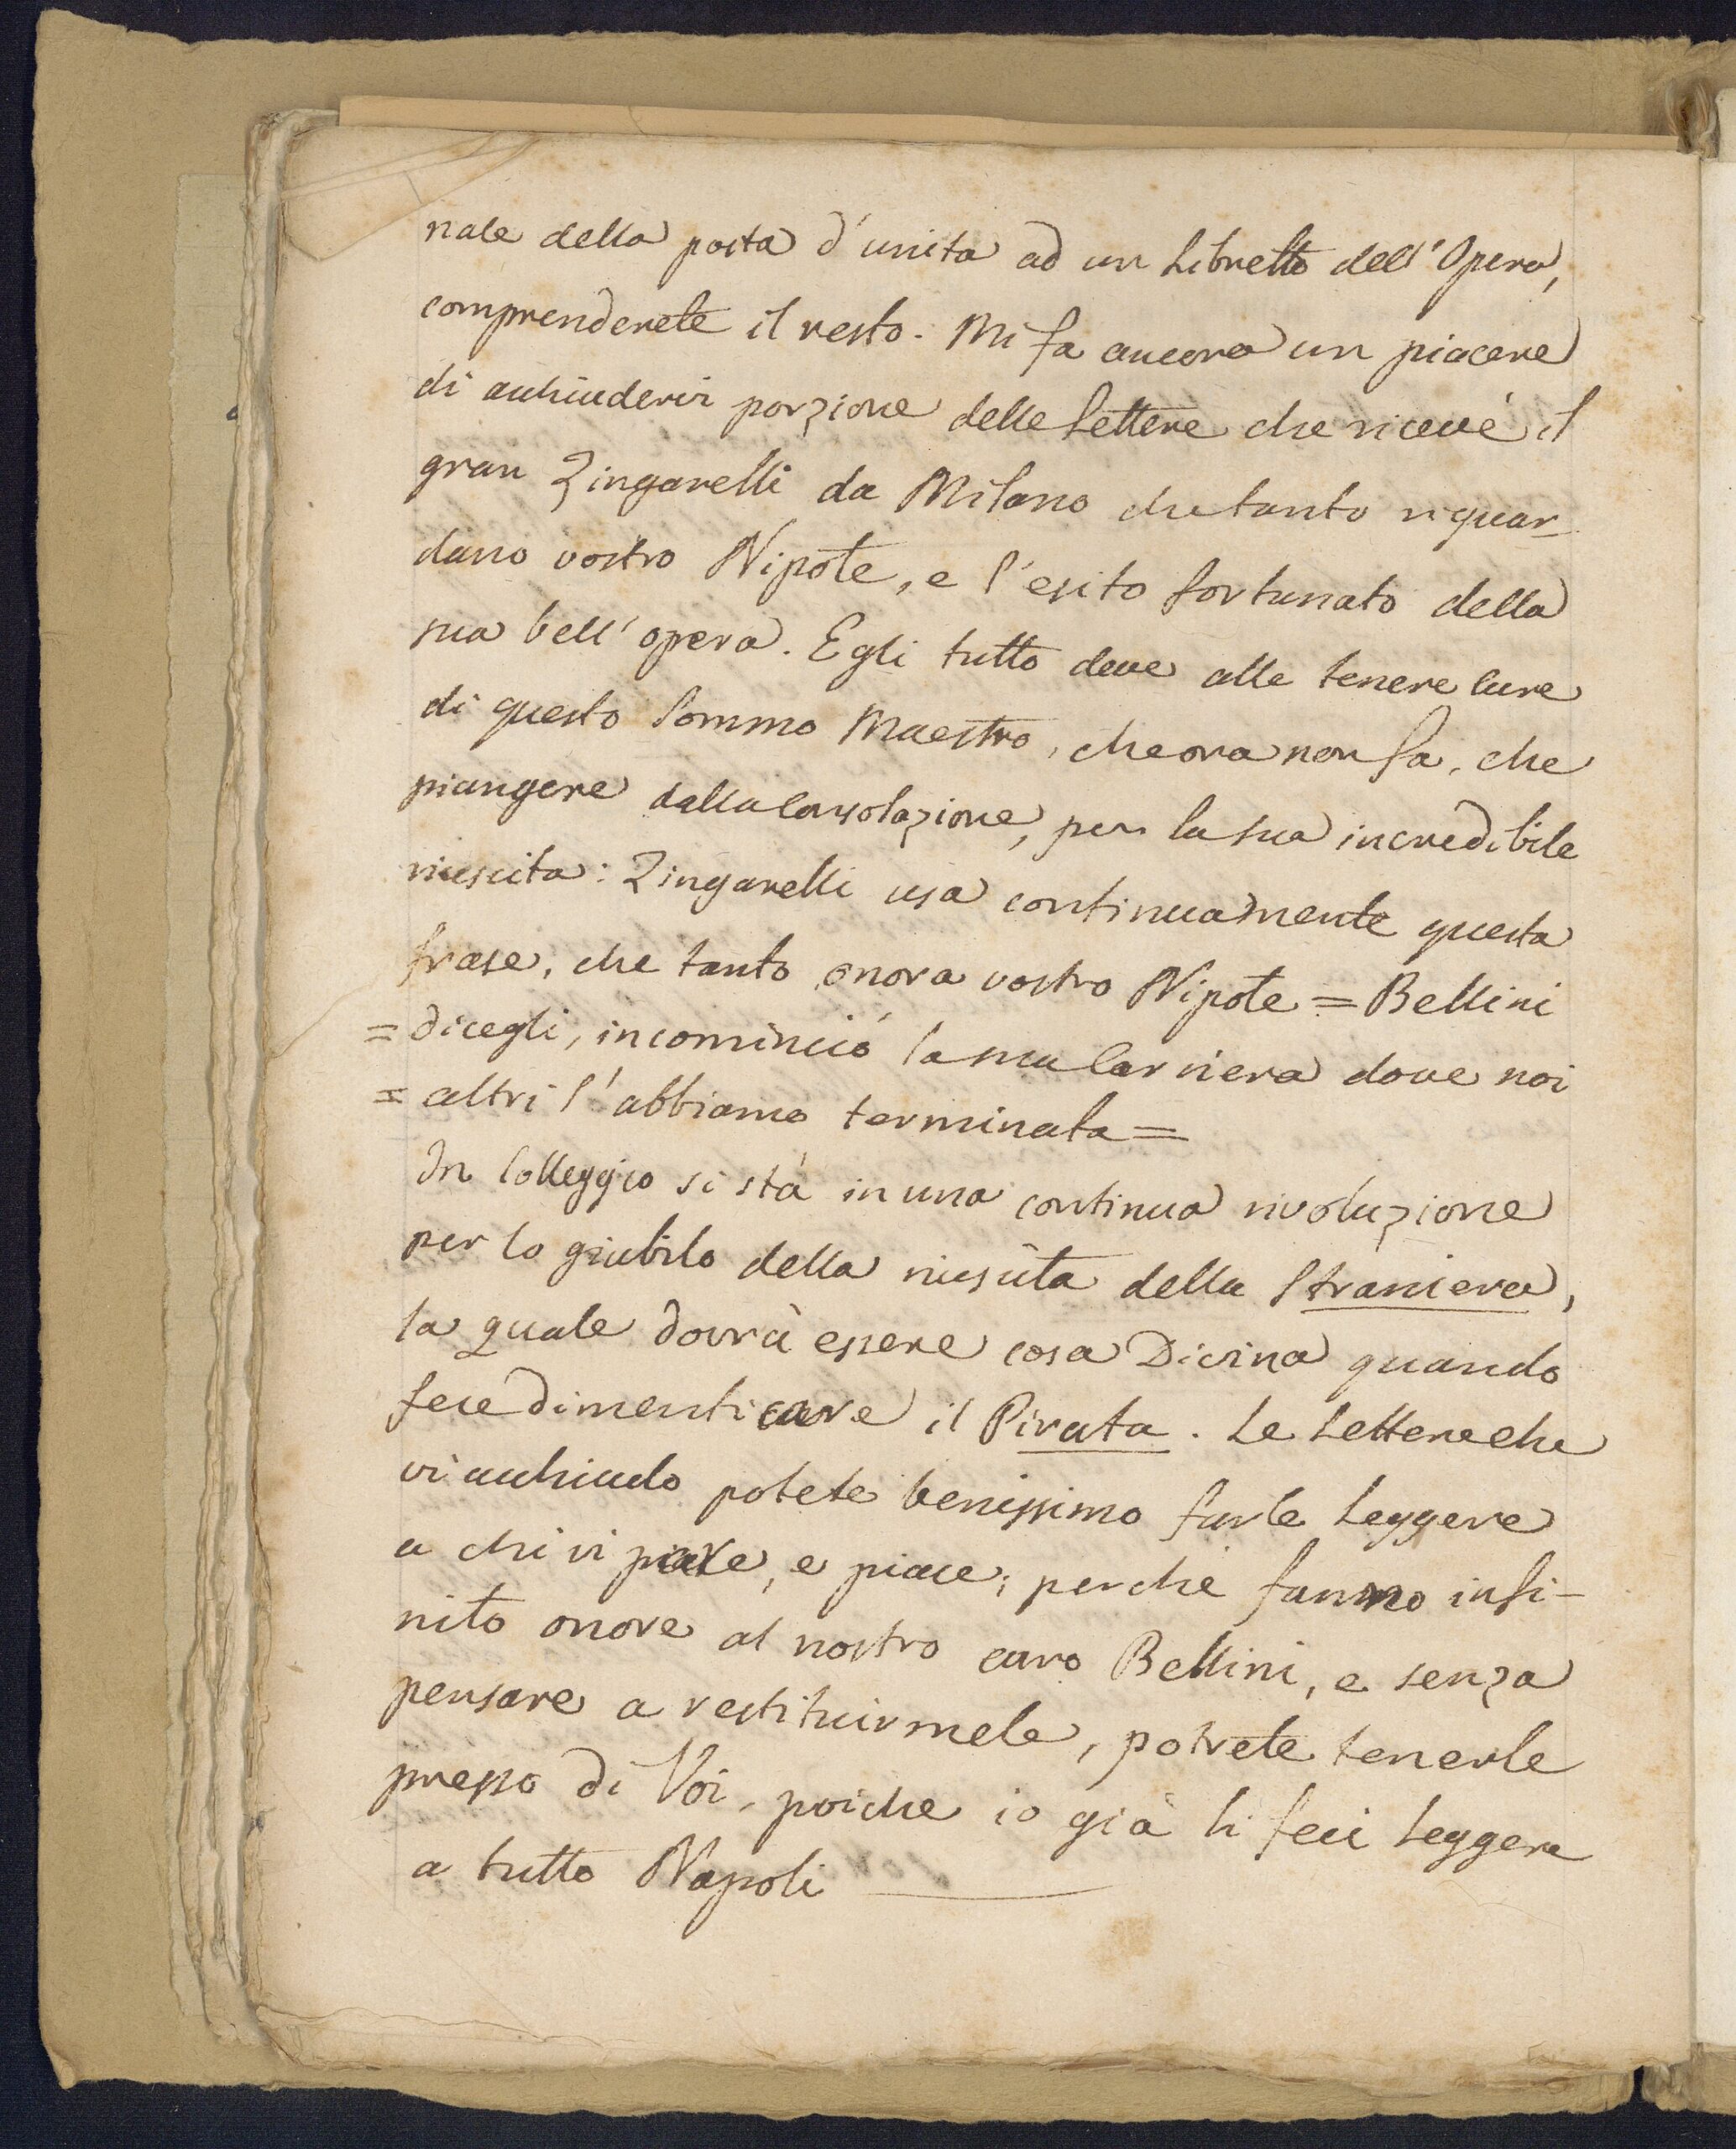 nale della posta d'unita ad un Libretto dell'Opera,
comprenderete il resto. Mi fa ancora un piacere
di acchiudervi porzione delle Lettere che ricevè il
gran Zingarelli da Milano che tanto riguar-
dano vostro Nipote, e l'esito fortunato della
sua bell'opera. Egli tutto deve alle tenere Cure
di questo Sommo Maestro, che ora non fa, che
piangere dalla Consolazione, per la sua incredibile
riuscita: Zingarelli usa continuamente questa
frase, che tanto onora vostro Nipote = Bellini
= dicegli, incominciò la sua Carriera dove noi
= altri l'abbiamo terminata =
In Colleggio si stà in una continua rivoluzione
per lo giubilo della riuscita della Straniera,
la quale dovrà essere cosa Divina quando
fece dimenticare il Pirata. Le Lettere che
vi acchiudo potete benissimo farle Leggere
a chi vi pare, e piace; perchè fanno infi-
nito onore al nostro caro Bellini, e senza
pensare a restituirmele, potrete tenerle
presso di Voi, poiche io già li feci Leggere
a tutto Napoli